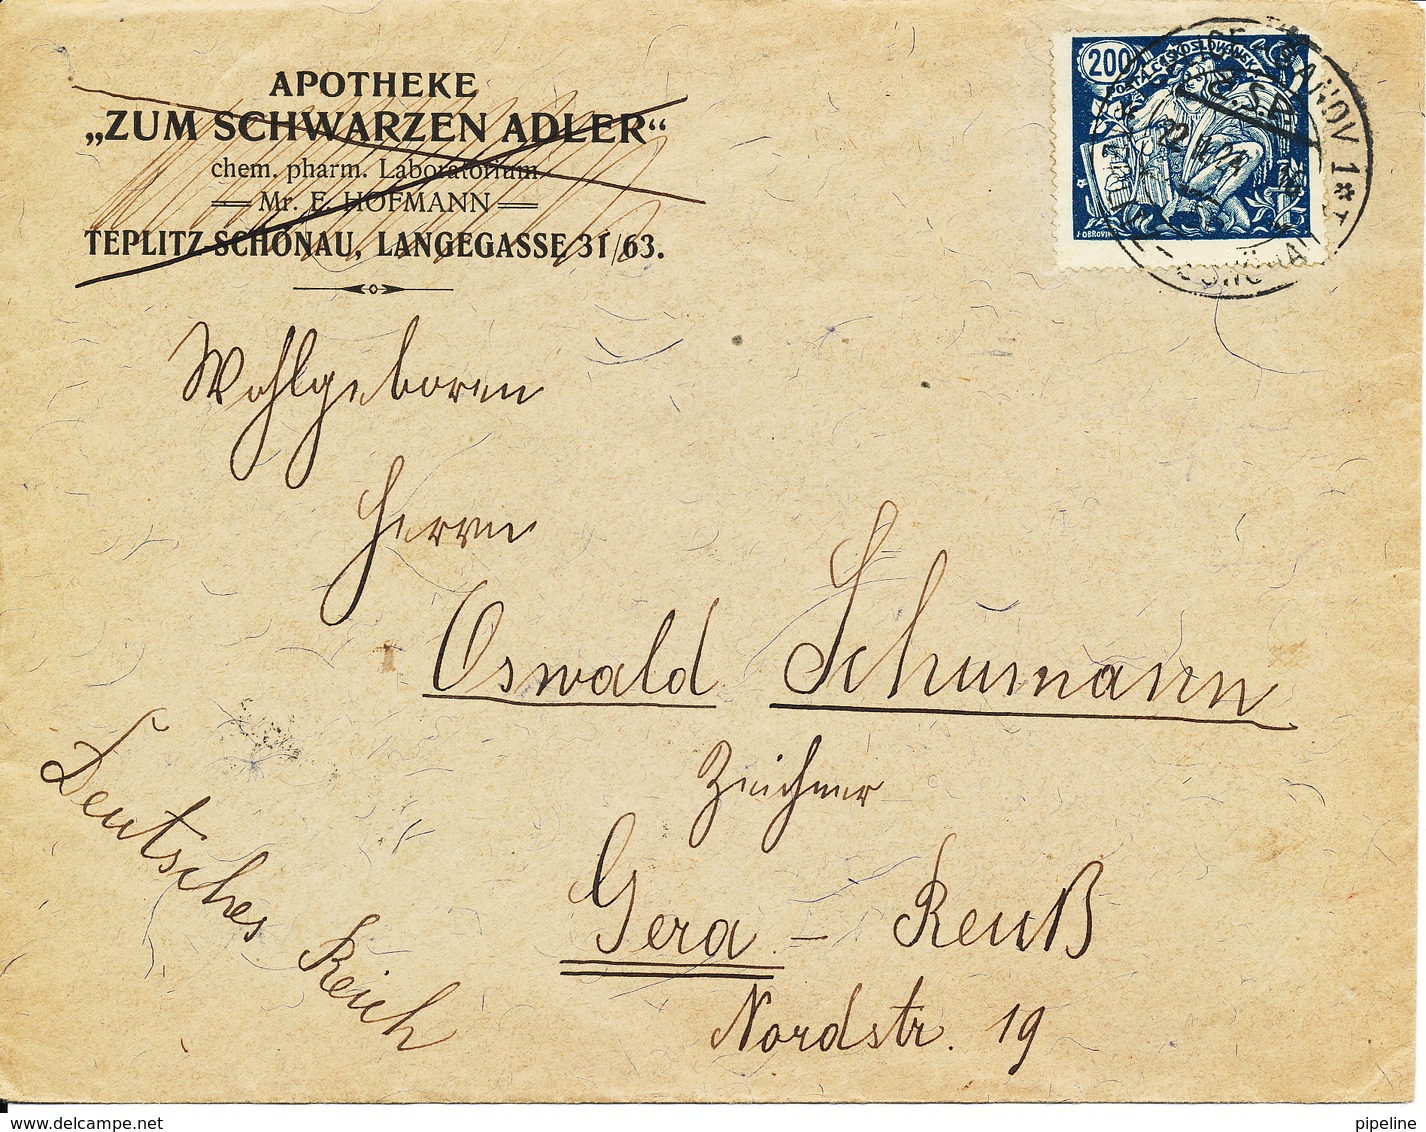 APOTHEKE
„ZUM SCHWARZEN ADLER“
chem. pharm. Laboratorium
Mr. E. HOFMANN
TEPLITZ-SCHÖNAU, LANGEGASSE 31/63.
200
POŠTA ČESKOSLOVENSKÁ
ŠANOV 1
Wohlgeboren
Herrn
Oswald Schumann
Zeichner
Gera - Reuß
Nordstr. 19
Deutsches Reich
pipeline